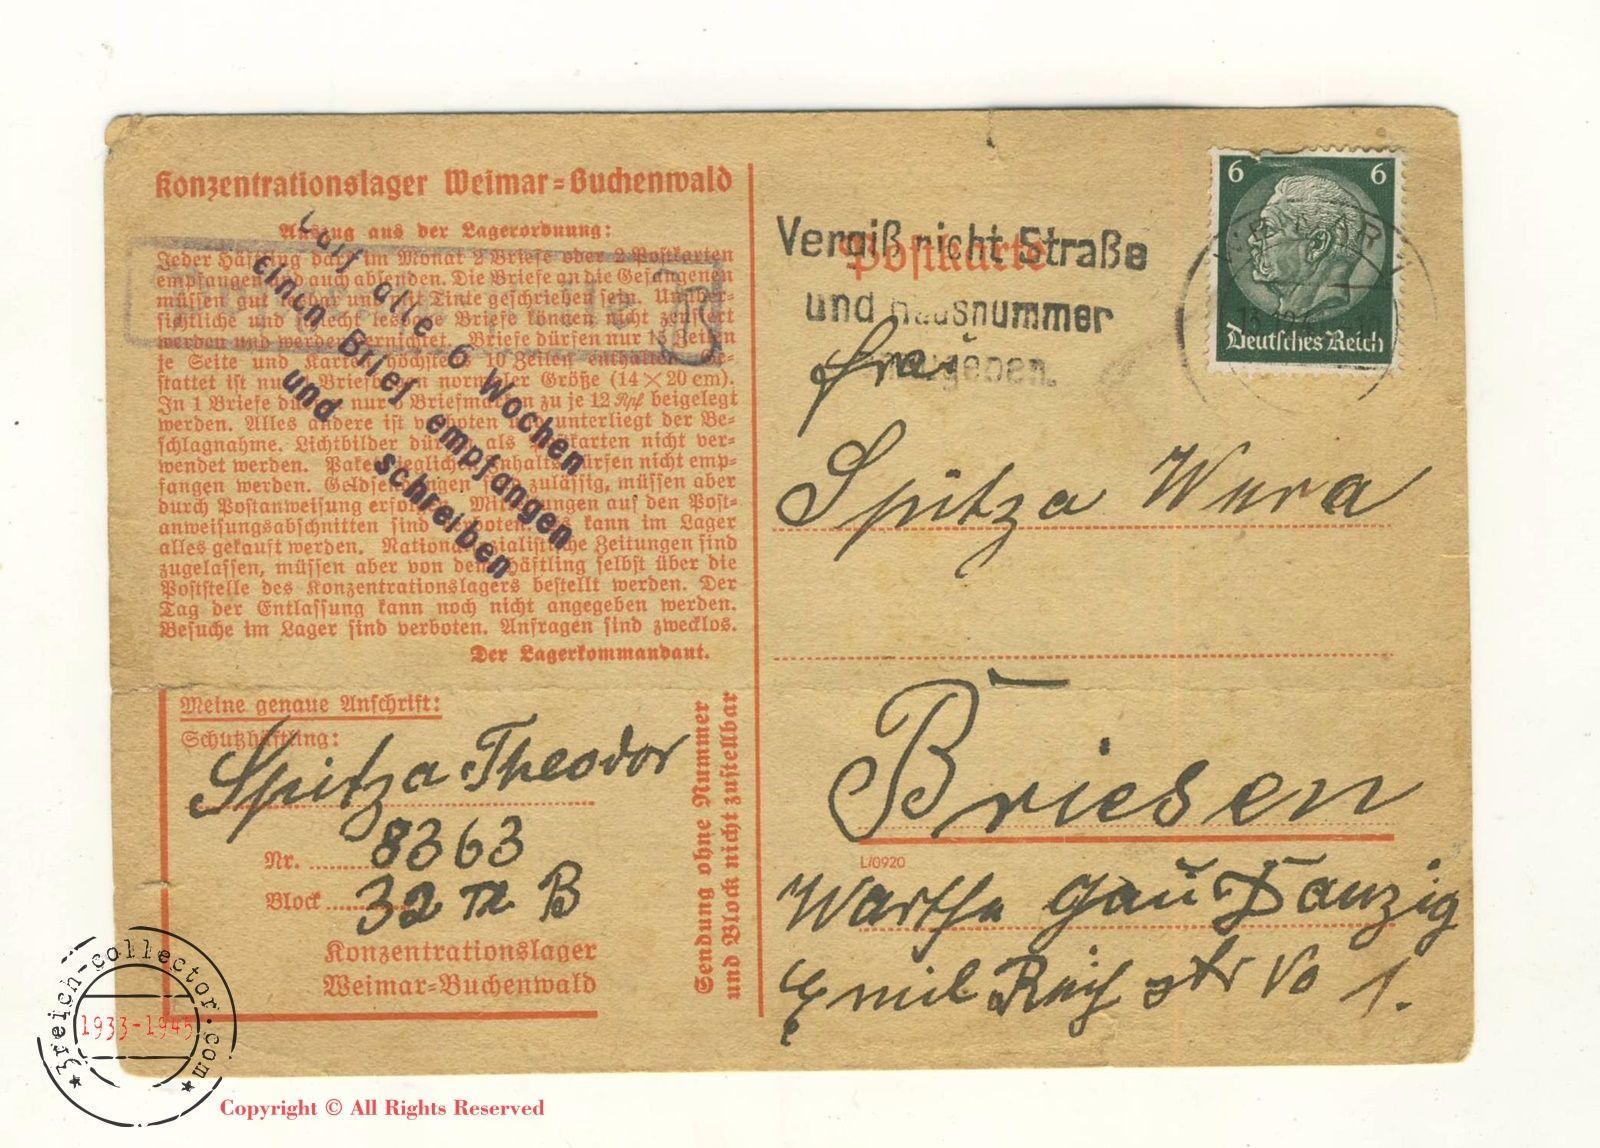 Konzentrationslager Weimar-Buchenwald
Auszug aus der Lagerordnung:
Jeder Häftling darf im Monat 2 Briefe oder 2 Postkarten
empfangen und auch absenden. Die Briefe an die Gefangenen
müssen gut lesbar und mit Tinte geschrieben sein. Unüber-
sichtliche und schlecht lesbare Briefe können nicht zensiert
werden und werden vernichtet. Briefe dürfen nur 15 Zeilen
je Seite und Karten höchstens 10 Zeilen enthalten. Ge-
stattet ist nur 1 Briefbogen normaler Größe (14×20 cm).
In 1 Briefe dürfen nur 5 Briefmarken zu je 12 Rpf beigelegt
werden. Alles andere ist verboten und unterliegt der Be-
schlagnahme. Lichtbilder dürfen als Postkarten nicht ver-
wendet werden. Pakete jeglichen Inhalts dürfen nicht emp-
fangen werden. Geldsendungen sind zulässig, müssen aber
durch Postanweisung erfolgen. Mitteilungen auf den Post-
anweisungsabschnitten sind verboten. Es kann im Lager
alles gekauft werden. Nationalsozialistische Zeitungen sind
zugelassen, müssen aber von dem Häftling selbst über die
Poststelle des Konzentrationslagers bestellt werden. Der
Tag der Entlassung kann noch nicht angegeben werden.
Besuche im Lager sind verboten. Anfragen sind zwecklos.
Der Lagerkommandant.
Darf alle 6 Wochen
einen Brief empfangen
und schreiben
Meine genaue Anschrift:
Schutzhäftling:
Spitza Theodor
Nr. 8363
Block 32 B
Konzentrationslager
Weimar-Buchenwald
Sendung ohne Nummer
und Block nicht zustellbar
Postkarte
Vergiß nicht Straße
und Hausnummer
anzugeben.
6 6
Deutsches Reich
WEIMAR
Spitza Wera
Briesen
L/0920
Warthe Gau Danzig
Emil str No 1.
3reich-collector.com
1933-1945
Copyright © All Rights Reserved